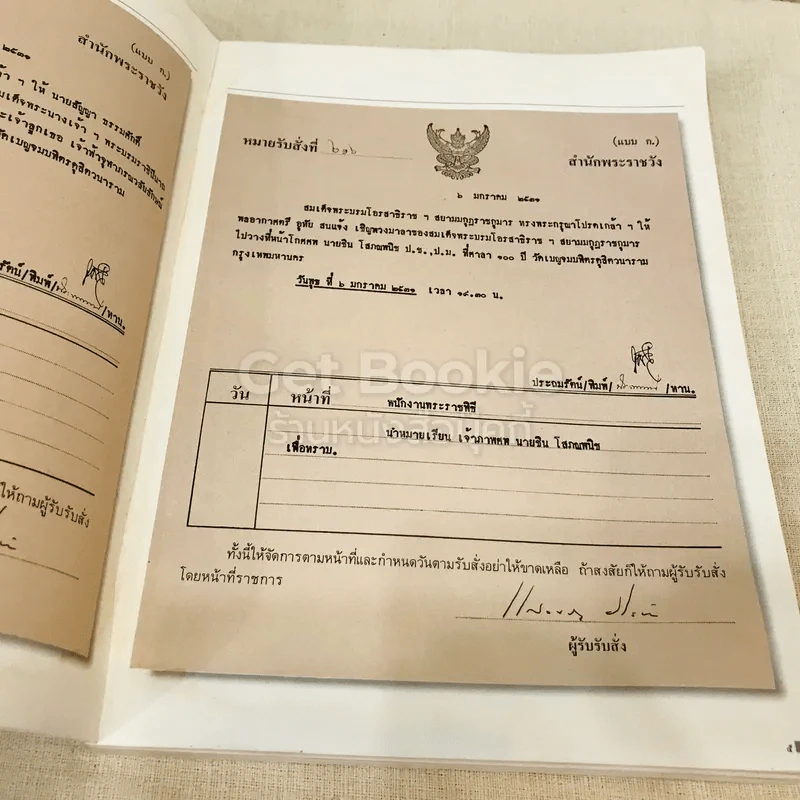 (แบบ ก.)
สำนักพระราชวัง
๒๕๓๑
ฯ ให้ นายสัญญา ธรรมศักดิ์
สมเด็จพระนางเจ้า ฯ พระบรมราชินีนาถ
เจ้าลูกเธอ เจ้าฟ้าจุฬาภรณวลัยลักษณ์
วัดเบญจมบพิตรดุสิตวนาราม
/พิมพ์/
/ทาน.
ให้ถามผู้รับรับสั่ง
(แบบ ก.)
หมายรับสั่งที่ ๒๑๖
สำนักพระราชวัง
๖ มกราคม ๒๕๓๑
สมเด็จพระบรมโอรสาธิราช ฯ สยามมกุฎราชกุมาร ทรงพระกรุณาโปรดเกล้า ฯ ให้
พลอากาศตรี อุทัย สนแจ้ง เชิญพวงมาลาของสมเด็จพระบรมโอรสาธิราช ฯ สยามมกุฎราชกุมาร
ไปวางที่หน้าโกศศพ นายชิน โสภณพนิช ป.ช.,ป.ม. ที่ศาลา ๑๐๐ ปี วัดเบญจมบพิตรดุสิตวนาราม
กรุงเทพมหานคร
วันพุธ ที่ ๖ มกราคม ๒๕๓๑ เวลา ๑๙.๓๐ น.
Get Bookie
ร้านหนังสือบุคกี้
ประถมรัตน์/พิมพ์/
/ทาน.
วัน หน้าที่
พนักงานพระราชพิธี
นำหมายเรียน เจ้าภาพศพ นายชิน โสภณพนิช
เพื่อทราบ.
ทั้งนี้ให้จัดการตามหน้าที่และกำหนดวันตามรับสั่งอย่าให้ขาดเหลือ ถ้าสงสัยก็ให้ถามผู้รับรับสั่ง
โดยหน้าที่ราชการ
ผู้รับรับสั่ง
๕